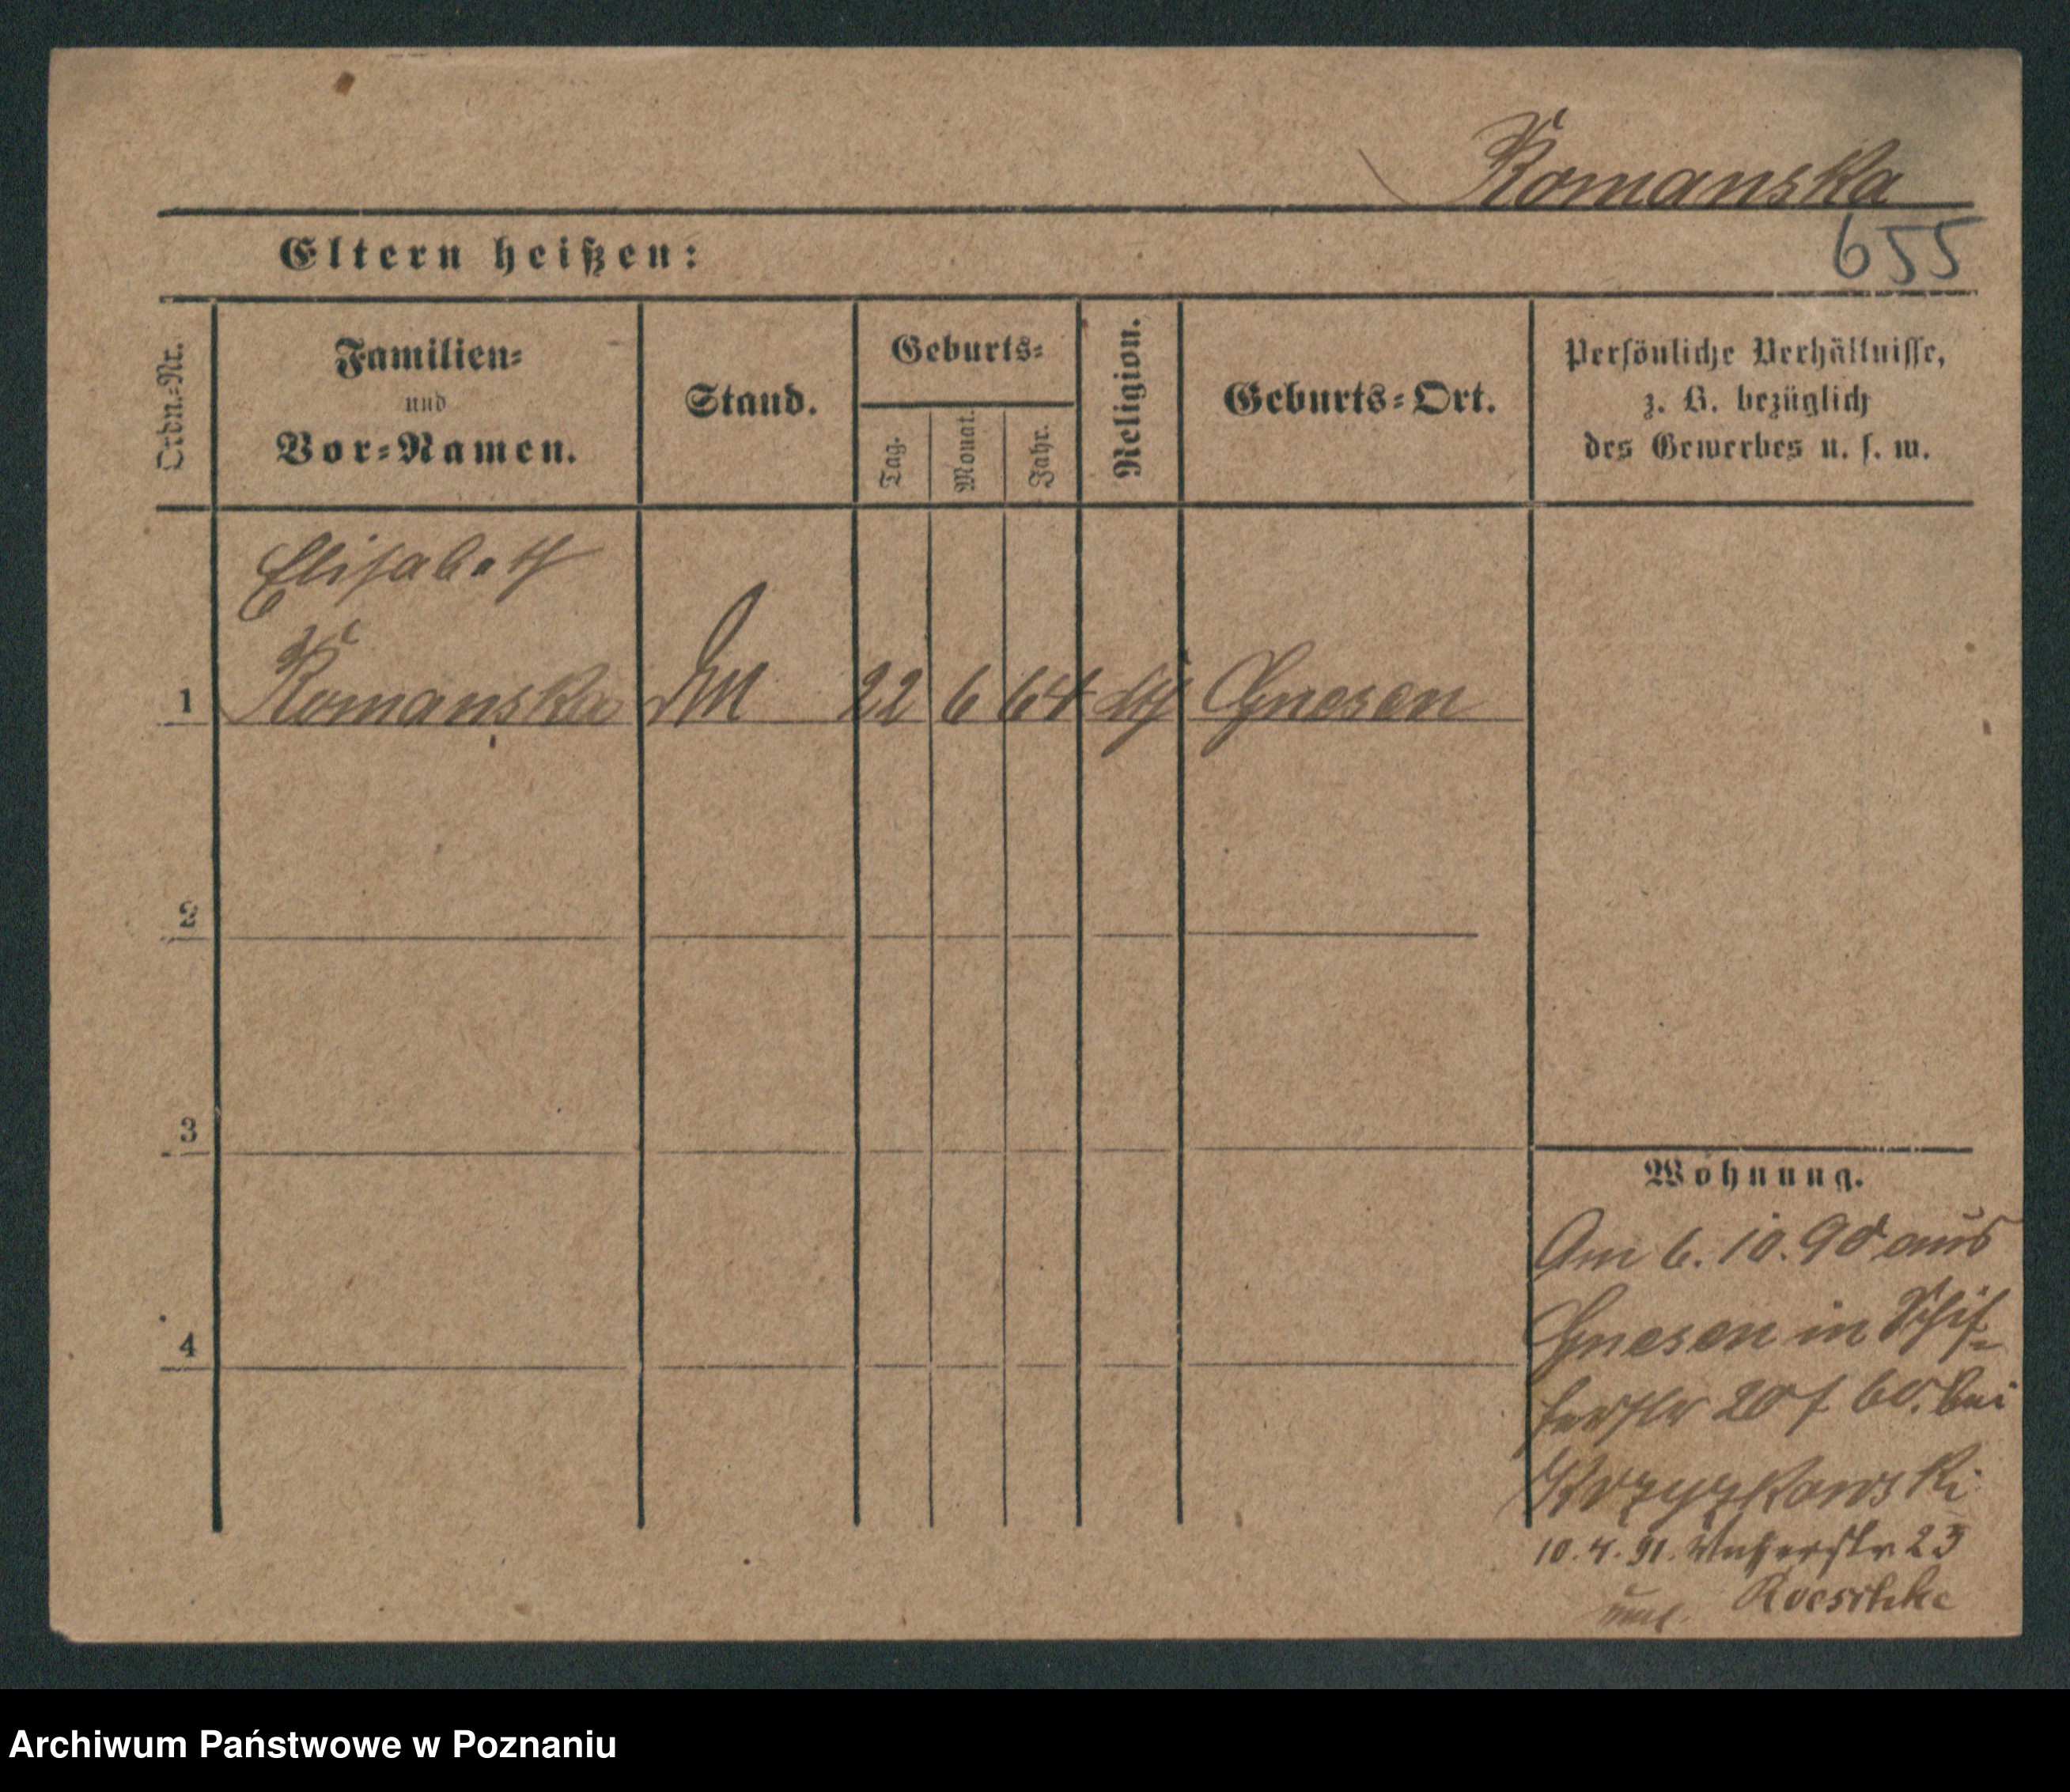 Romanska
655
Eltern heißen:
Ordn.-Nr.
Familien-
und
Vor-Namen.
Stand.
Geburts-
Tag.
Monat.
Jahr.
Religion.
Geburts-Ort.
Persönliche Verhältnisse,
z. B. bezüglich
des Gewerbes u. s. w.
Elisabeth
1 Romanska 22 6 64 Gnesen
2
3
4
Wohnung.
Am 6. 10. 90 aus
Gnesen in Schif-
ferstr 20 bei
Krzyzkowski
10. 4. 91. 23
Roeschke
Archiwum Państwowe w Poznaniu